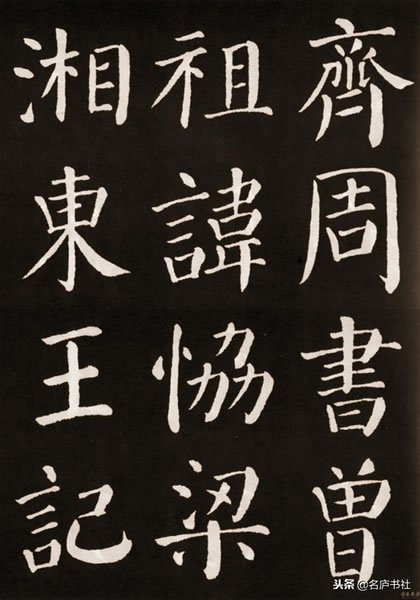 齊周書曾
祖諱恊梁
湘東王記
头条@名庐书社